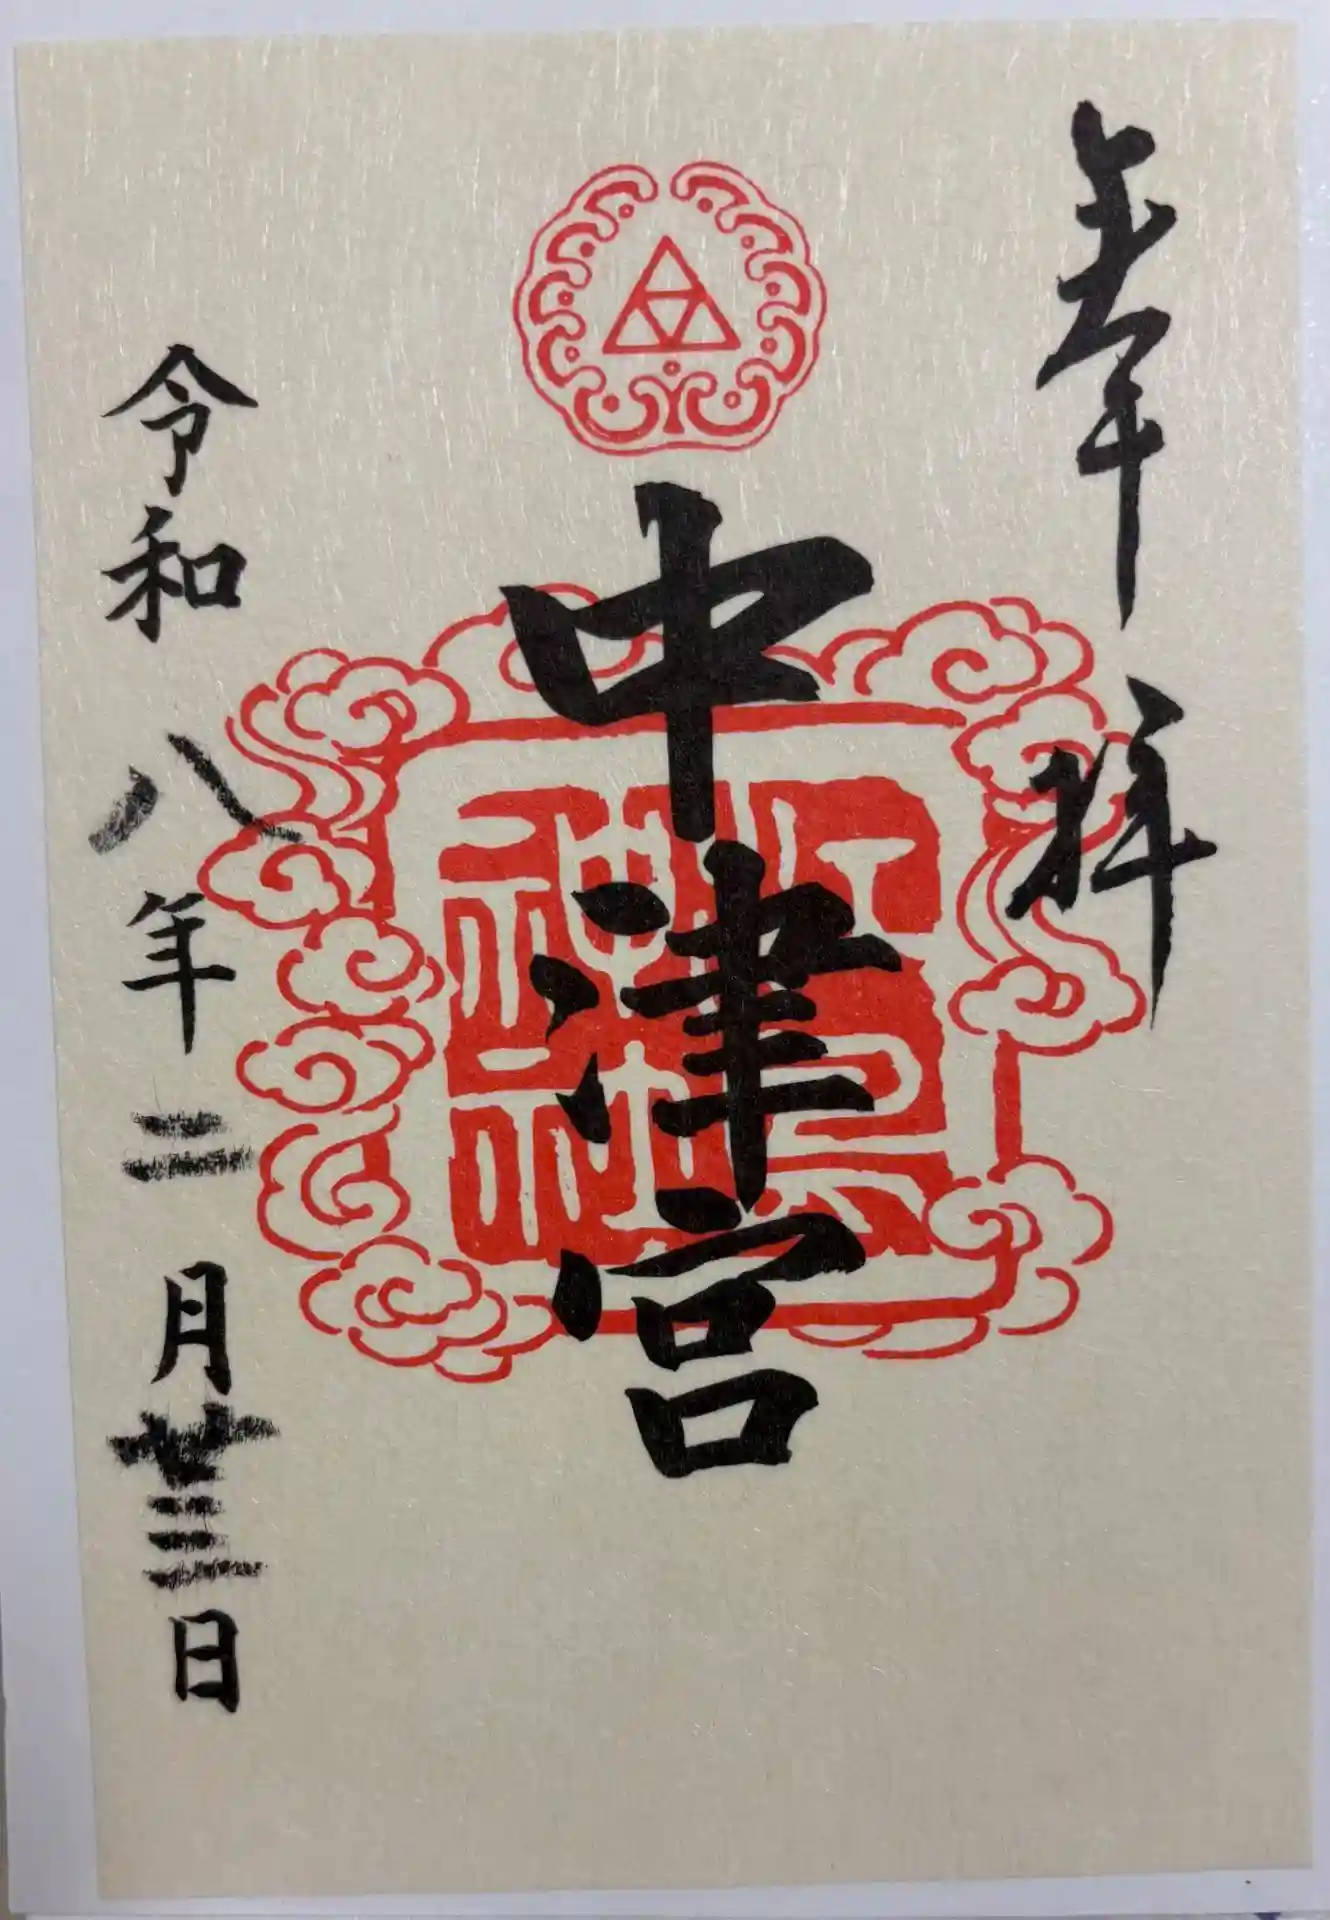 奉拝
中津宮
令和八年二月廿三日